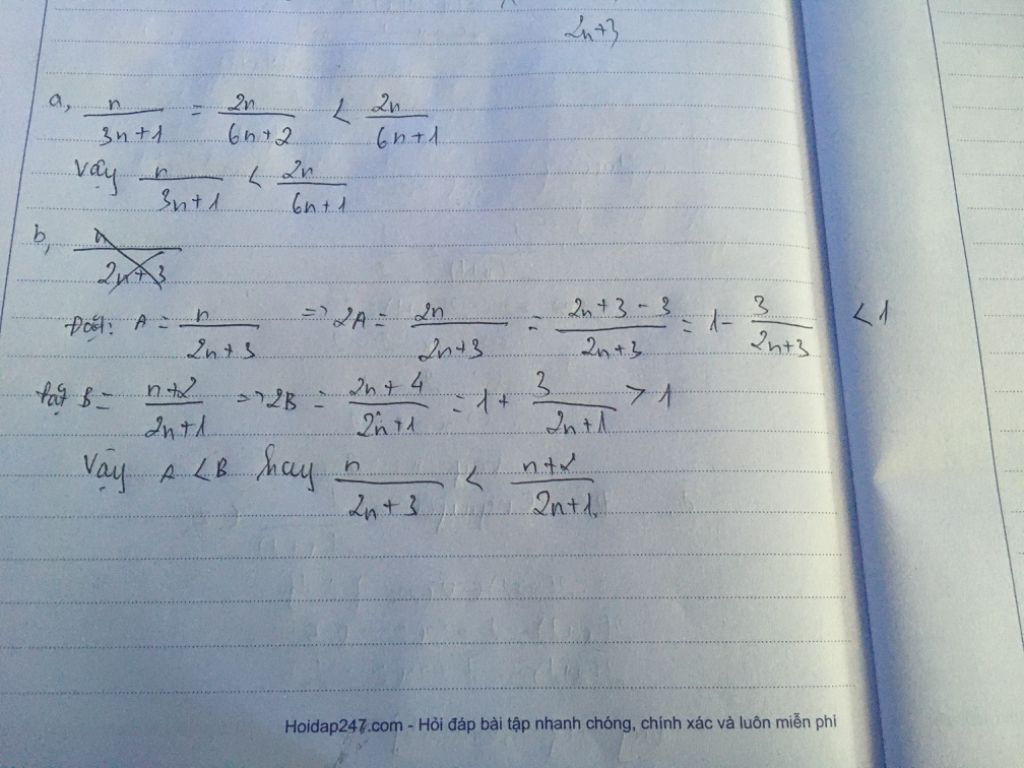 2n+3
a, n/(3n+1) = 2n/(6n+2) < 2n/(6n+1)
Vậy n/(3n+1) < 2n/(6n+1)
b, n/(2n+3)
Đặt: A = n/(2n+3) => 2A = 2n/(2n+3) = (2n+3-3)/(2n+3) = 1 - 3/(2n+3) < 1
Đặt B = (n+2)/(2n+1) => 2B = (2n+4)/(2n+1) = 1 + 3/(2n+1) > 1
Vậy A < B hay n/(2n+3) < (n+2)/(2n+1).
Hoidap247.com - Hỏi đáp bài tập nhanh chóng, chính xác và luôn miễn phi